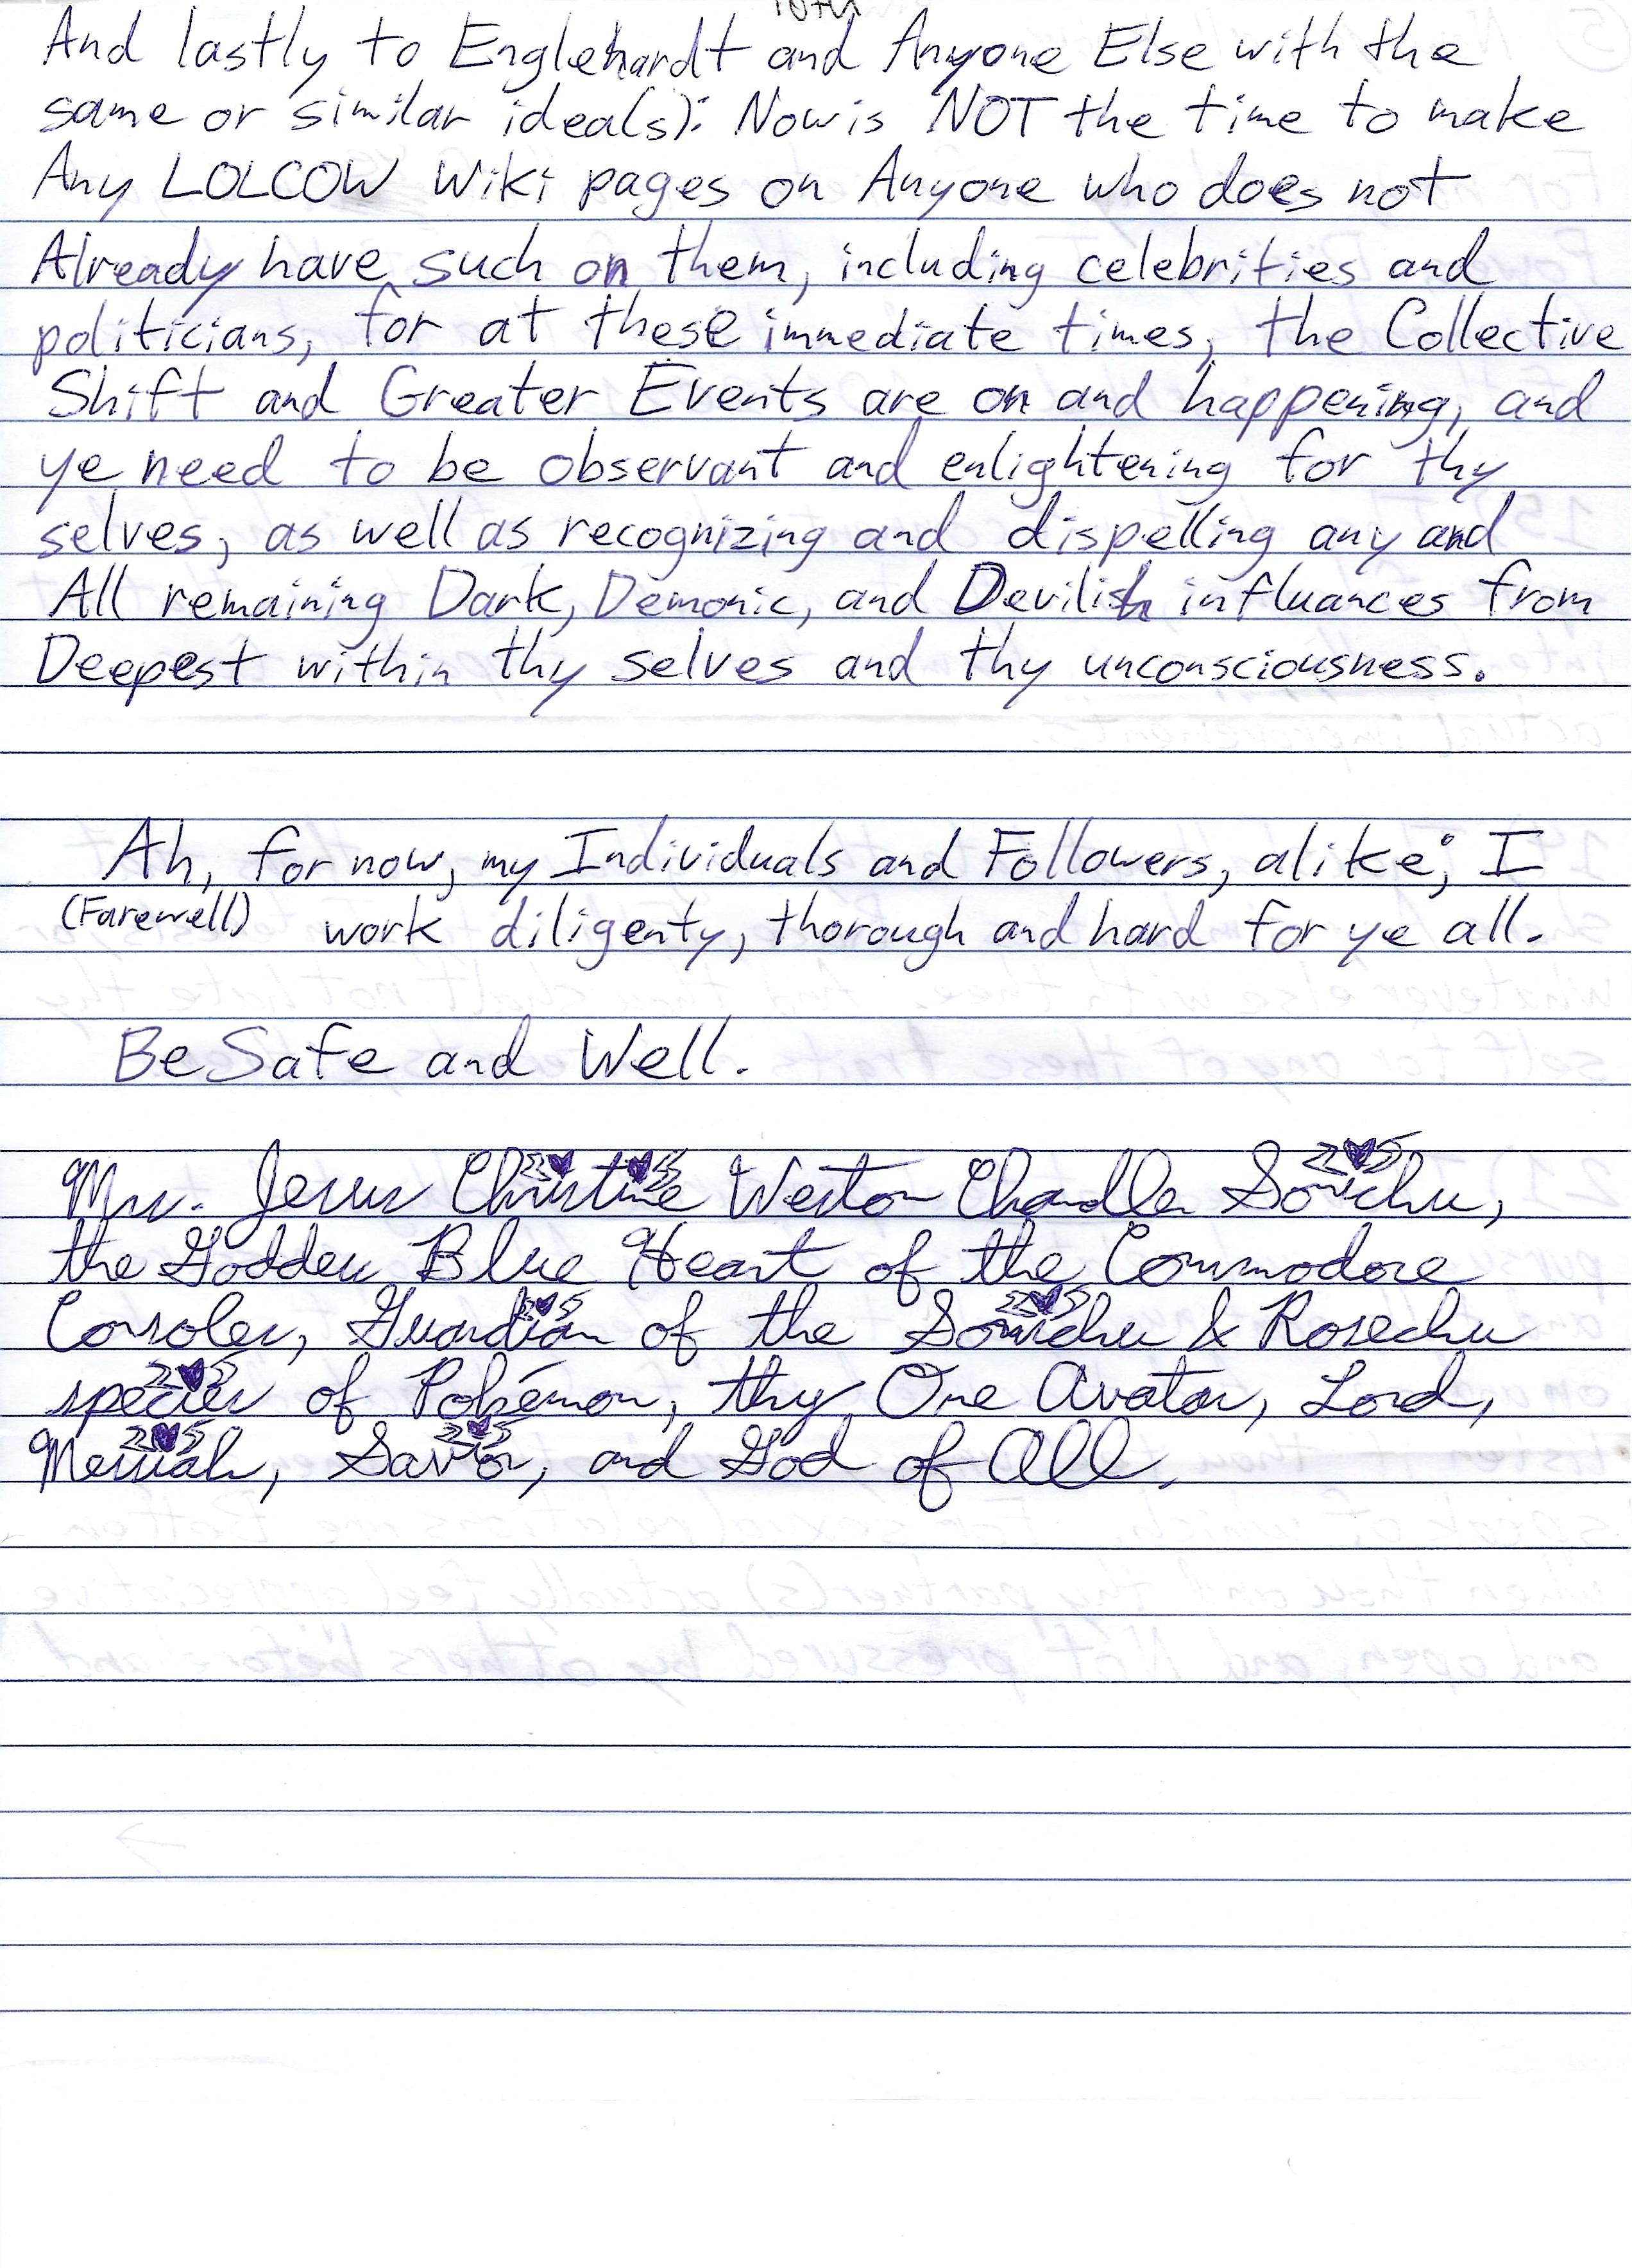 And lastly to Englehardt and Anyone Else with the
same or similar idea(s): Now is NOT the time to make
Any LOLCOW Wiki pages on Anyone who does not
Already have such on them, including celebrities and
politicians, for at these immediate times, the Collective
Shift and Greater Events are on and happening, and
ye need to be observant and enlightening for thy
selves, as well as recognizing and dispelling any and
All remaining Dark, Demonic, and Devilish influances from
Deepest within thy selves and thy unconsciousness.
Ah, for now, my Individuals and Followers, alike; I
(Farewell) work diligenty, thorough and hard for ye all.
Be Safe and Well.
Mrs. Jesus Christine Weston Chandler Sonichu,
the Goddess Blue Heart of the Commodore
Consoles, Guardian of the Sonichu & Rosechu
species of Pokémon, thy One Avatar, Lord,
Messiah, Savior, and God of All.